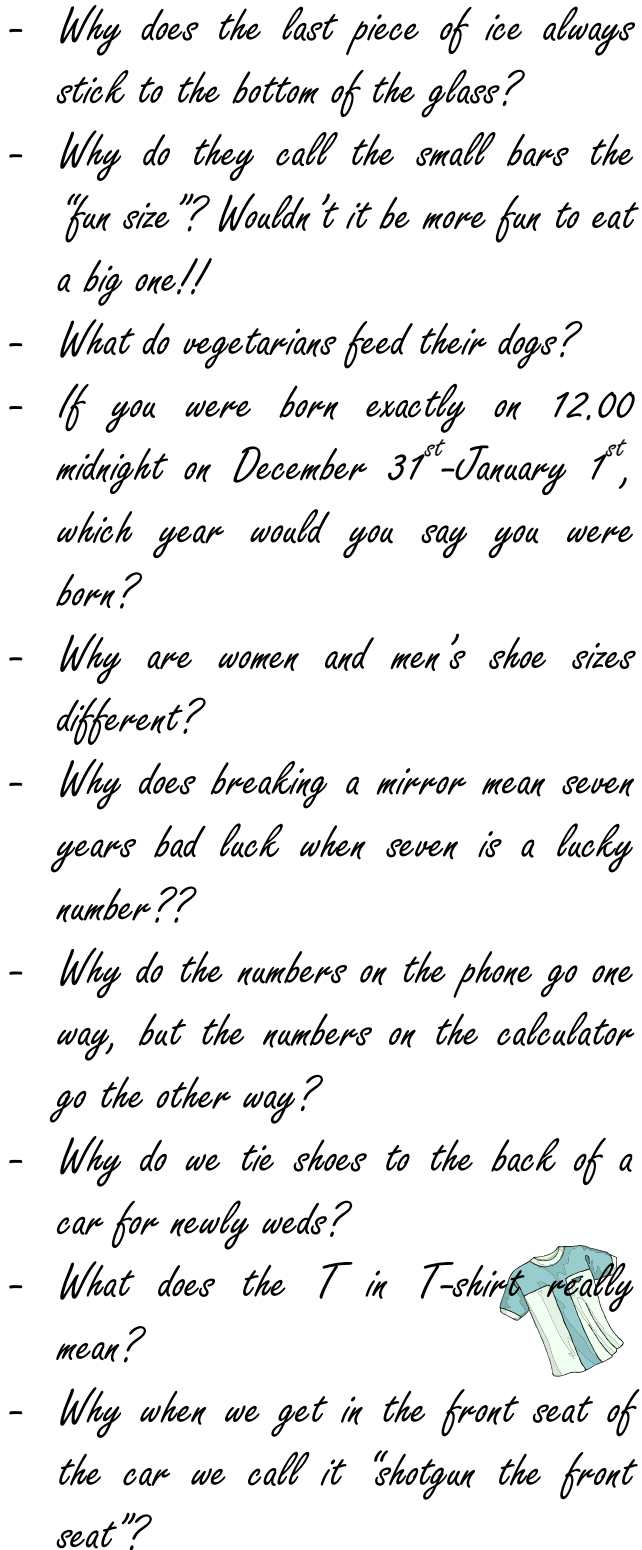 - Why does the last piece of ice always
stick to the bottom of the glass?
- Why do they call the small bars the
“fun size”? Wouldn’t it be more fun to eat
a big one!!
- What do vegetarians feed their dogs?
- If you were born exactly on 12.00
midnight on December 31st-January 1st,
which year would you say you were
born?
- Why are women and men’s shoe sizes
different?
- Why does breaking a mirror mean seven
years bad luck when seven is a lucky
number??
- Why do the numbers on the phone go one
way, but the numbers on the calculator
go the other way?
- Why do we tie shoes to the back of a
car for newly weds?
- What does the T in T-shirt really
mean?
- Why when we get in the front seat of
the car we call it “shotgun the front
seat”?